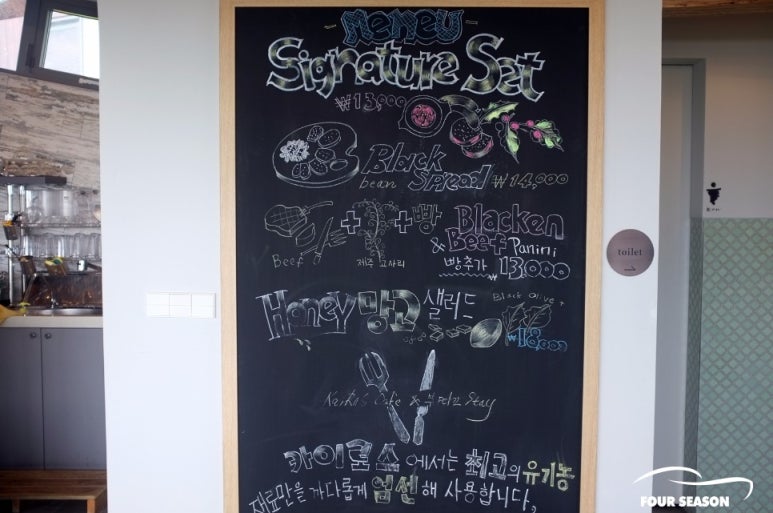 MEMEU
Signature Set
₩13,000
Black
bean SPREAD ₩14,000
+ + 빵
Beef 제주 고사리
Blacken
& Beef Panini
빵추가 ₩13,000
Honey 망고 샐러드
Black Olive +
₩18,000
toilet
Cafe & Stay
카이로스 에서는 최고의 유기농
재료만을 까다롭게 엄선해 사용합니다,
FOUR SEASON